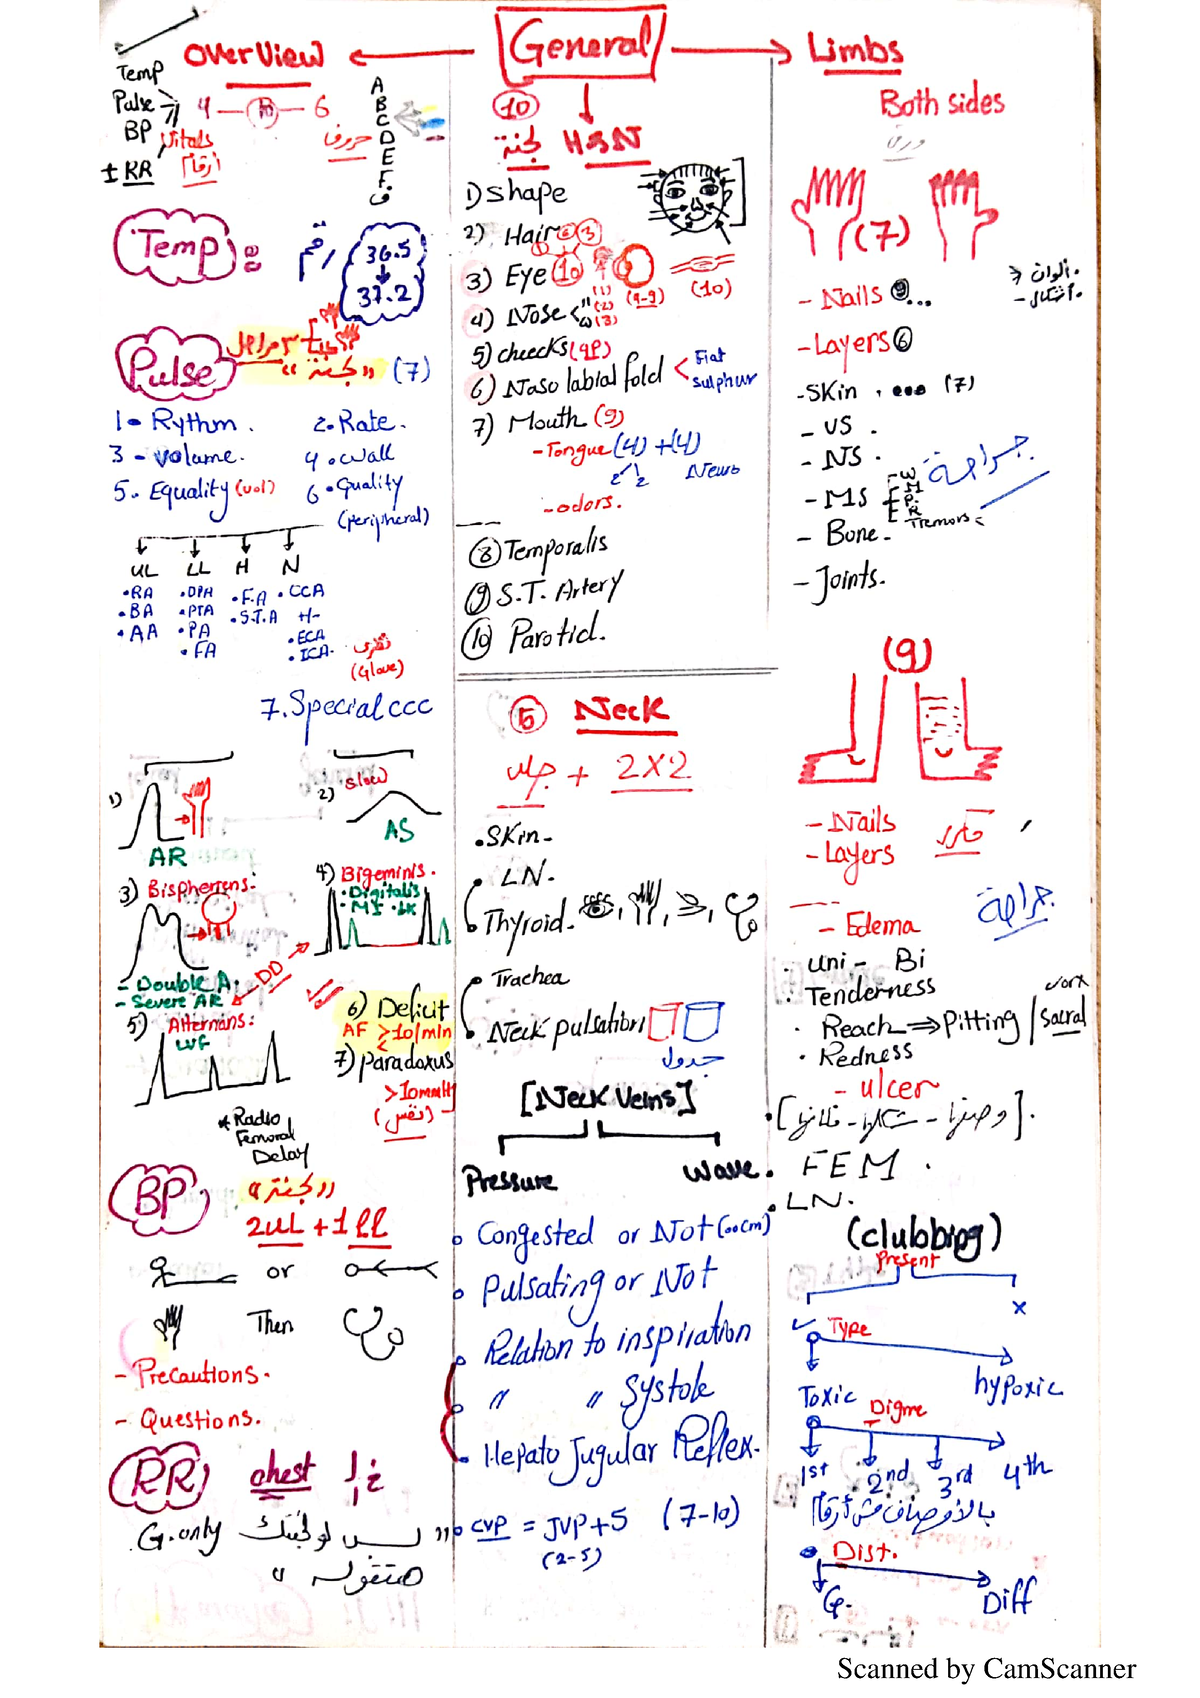 General
OverView
Temp
Pulse
BP
± RR
Vitals
أرقام
4 — 10 — 6
حروف
A
B
C
D
E
F
ف
Temp
رقم
36.5
37.2
Pulse
"لجنة" (7)
1- Rythm.
2. Rate.
3 - volume.
4. wall
5. Equality (vol)
6. Quality
(peripheral)
UL LL H N
• RA
• BA
• AA
• DPA
• PTA
• PA
• FA
• F.A
• S.T.A
• CCA
• ECA
• ICA
(Glove)
7. Special ccc
1)
AR
2) Slow
AS
3) Bispherrens:
- Double A.
- Severe AR
4) Bigeminis.
• Digitalis
• MI
DD
5) Alternans:
LVF
6) Deficit
AF >10/min
7) Paradoxus
>10mmH
(نفس)
* Radio
Femoral
Delay
BP
"لجنة"
2UL + 1LL
or
Then
- Precautions.
- Questions.
RR
chest
G. only بس لو لجنتك
هتقوله "
10
لجنة H&N
1) Shape
2) Hair 3
3) Eye 10
(1)
(9-9)
(10)
4) Nose
(2)
(3)
5) cheeks (9p)
6) Naso labial fold
Flat
sulphur
7) Mouth (9)
- Tongue (4) + (4)
2 2 Neuro
- odors.
8 Temporalis
9 S.T. Artery
10 Parotid.
5 Neck
جلد + 2x2
• Skin -
• LN.
• Thyroid.
• Trachea
• Neck pulsation
جدول
[Neck Veins]
Pressure
Wave.
• Congested or Not (00cm)
• Pulsating or Not
• Relation to inspiration
• " " Systole
• Hepato Jugular Reflex.
• CVP = JVP+5 (7-10)
(2-5)
Limbs
Both sides
(7)
- Nails
ألوان
- أشكال
- Layers 6
- Skin . ... (7)
- VS .
- NS .
- MS
W
M
P.
R
Tremors
جراحة
- Bone -
- Joints.
(9)
- Nails
- Layers
جراحة
- Edema
• Uni - Bi
• Tenderness
• Reach ⇒ Pitting / Sacral
• Redness
- ulcer
• FEM .
• LN.
(clubbing)
Present
x
Type
Toxic
hypoxic
1st
2nd
3rd
4th
بالأوصاف مش أرقام
• Dist.
G.
Diff
Scanned by CamScanner